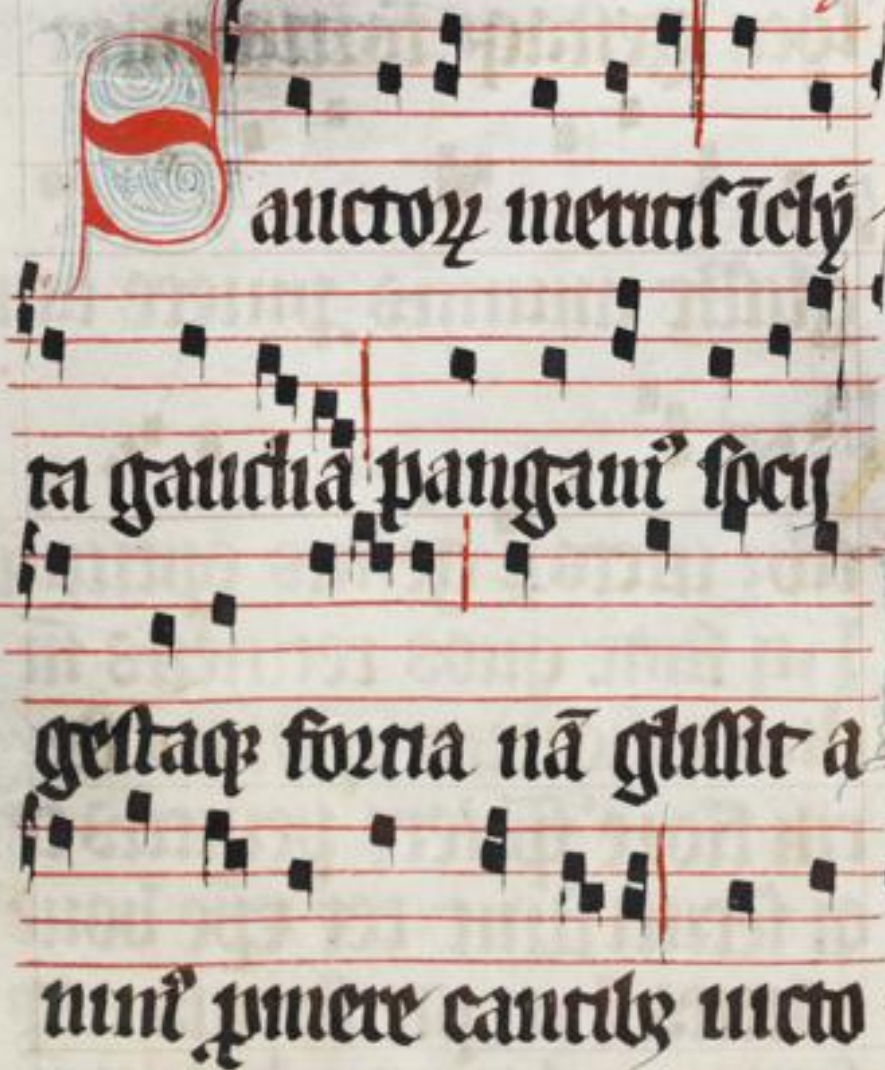 Sanctoꝝ meritis īclẏ
ta gaudia pangamꝰ socij
gestaqꝫ fortia nā glissit a
nimꝰ ꝓmere cantibꝫ uicto